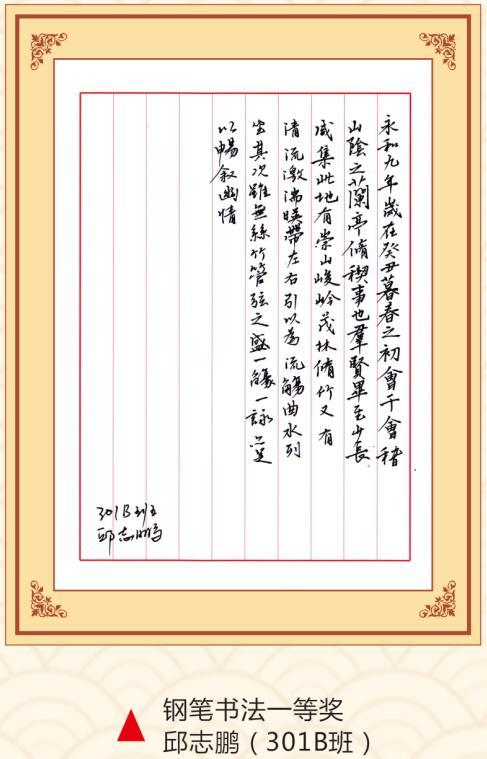 永和九年歲在癸丑暮春之初會于會稽
山陰之蘭亭脩稧事也羣賢畢至少長
咸集此地有崇山峻岭茂林脩竹又有
清流激湍暎帶左右引以為流觴曲水列
坐其次雖無絲竹管弦之盛一觴一詠亦足
以暢叙幽情
301B班
邱志鹏
钢笔书法一等奖
邱志鹏（301B班）